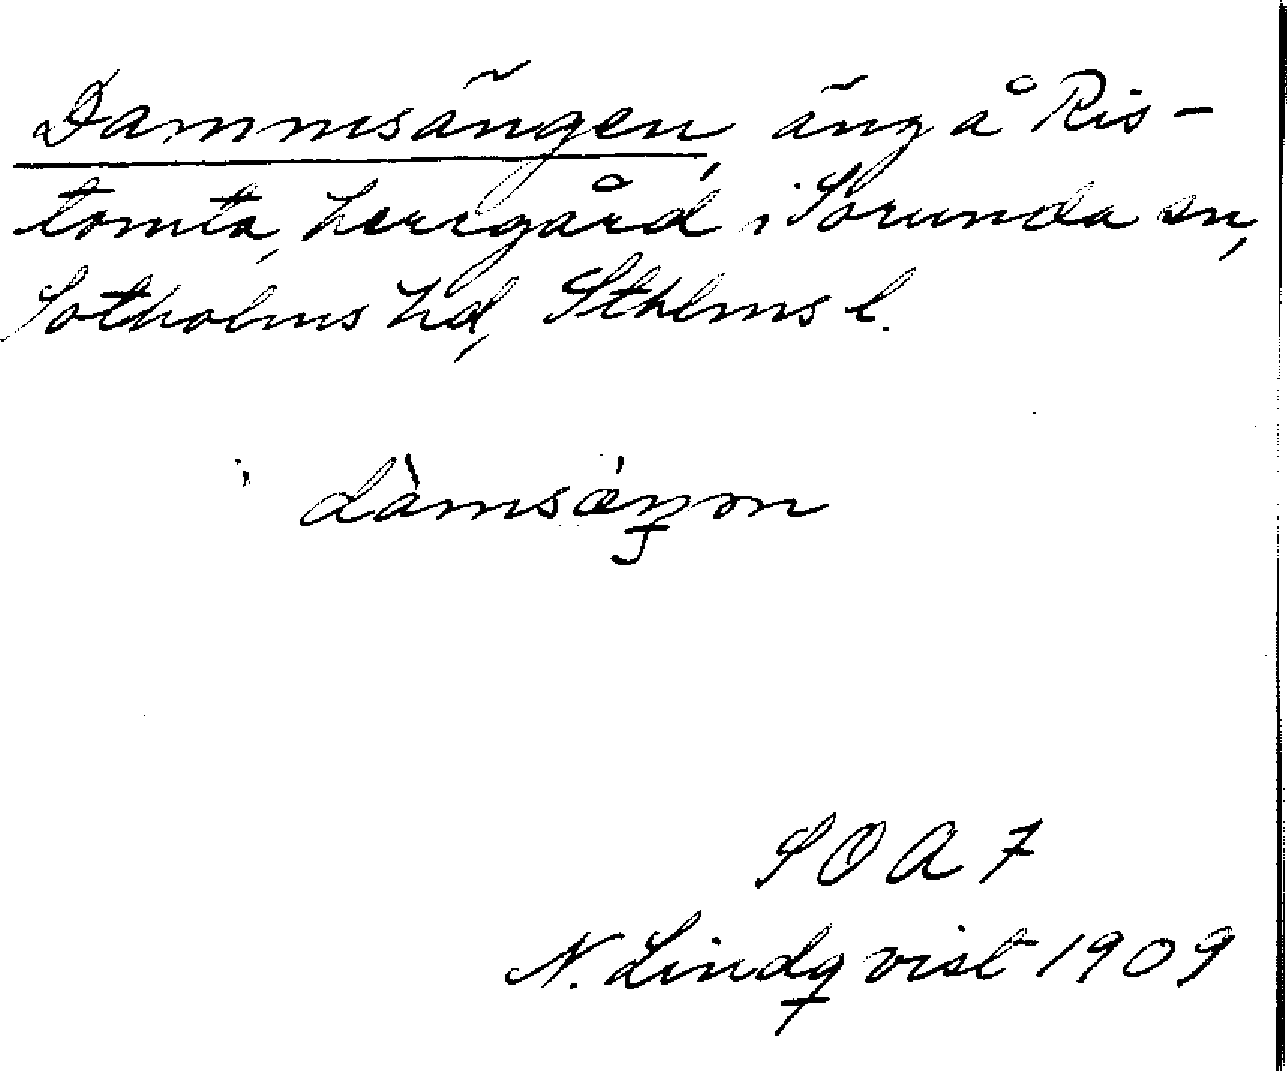 Dammsängen, äng å Ris-
tomta, herrgård i Sorunda sn,
Sotholms hd, Sthlms l.
dàmsæ´ŋɔn
SOAF
N. Lindqvist 1909